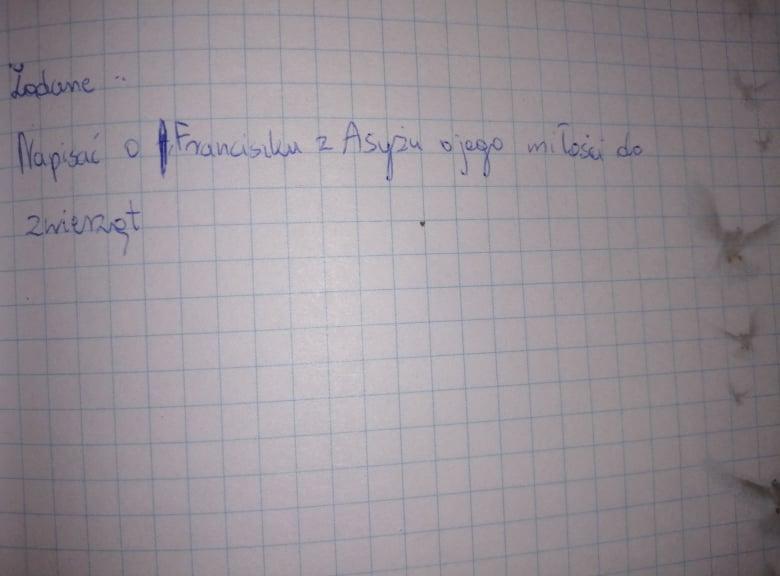 Zadane :
Napisać o Franciszku z Asyżu o jego miłości do
zwierząt